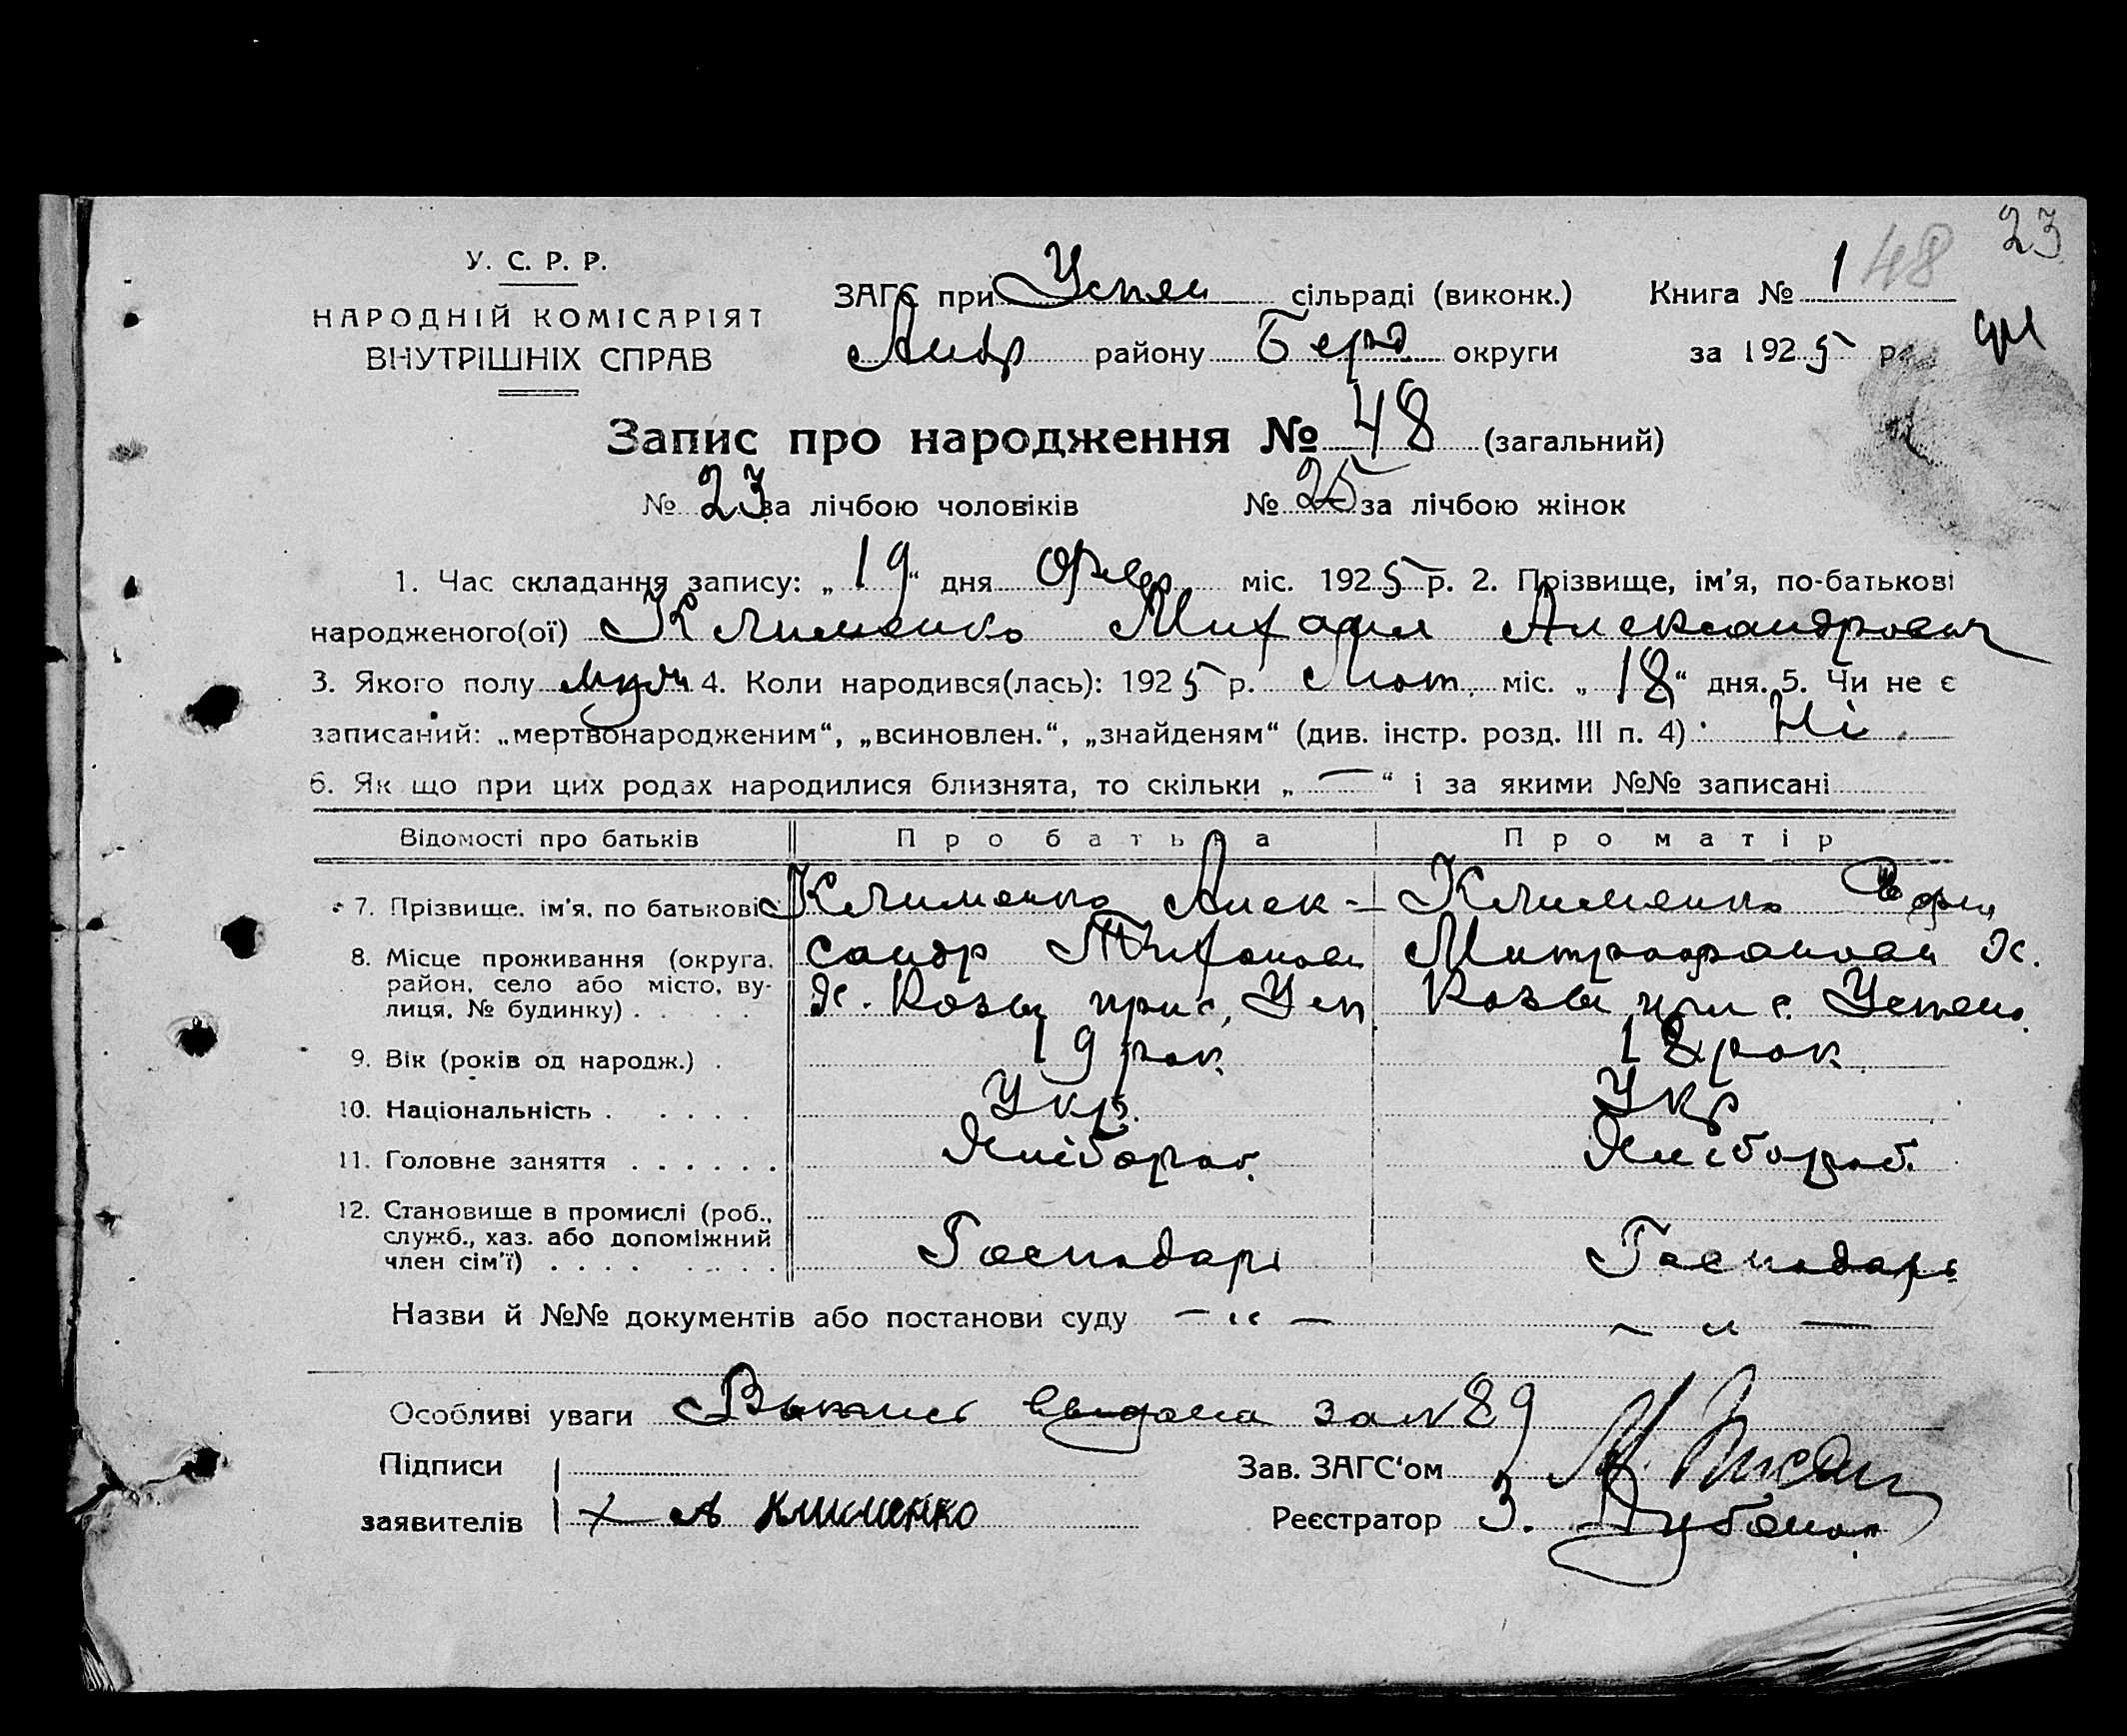 23
У. С. Р. Р.
НАРОДНІЙ КОМІСАРІЯТ
ВНУТРІШНІХ СПРАВ
ЗАГС при Успен сільраді (виконк.) Книга № 1 48
Андр району Берд округи за 1925 р.
Запис про народження № 48 (загальний)
№ 23 за лічбою чоловіків № 25 за лічбою жінок
1. Час складання запису: „19“ дня Февр міс. 1925 р. 2. Прізвище, ім'я, по-батькові
народженого(ої) Клименко Михаил Александрович
3. Якого полу муж 4. Коли народився(лась): 1925 р. Лют. міс. „18“ дня. 5. Чи не є
записаний: „мертвонародженим“, „всиновлен.“, „знайденям“ (див. інстр. розд. III п. 4) Ні
6. Як що при цих родах народилися близнята, то скільки „—“ і за якими №№ записані
Відомості про батьків Про батька Про матір
7. Прізвище, ім'я, по батькові Клименко Алек- Клименко
8. Місце проживання (округа, сандр Тихонов Митрофанови Х.
район, село або місто, ву-
лиця, № будинку) Х. Козы при с. Усп Козы при с. Успен.
9. Вік (років од народж.) 19 рок 18 рок
10. Національність Укр. Укр
11. Головне заняття Хлібороб. Хлібороб.
12. Становище в промислі (роб.,
служб., хаз. або допоміжний
член сім'ї) Господарь Господарь
Назви й №№ документів або постанови суду — „ — — „ —
Особливі уваги Выпись выдана за № 89
Підписи Зав. ЗАГС‘ом
заявителів х А Клименко Реєстратор З.